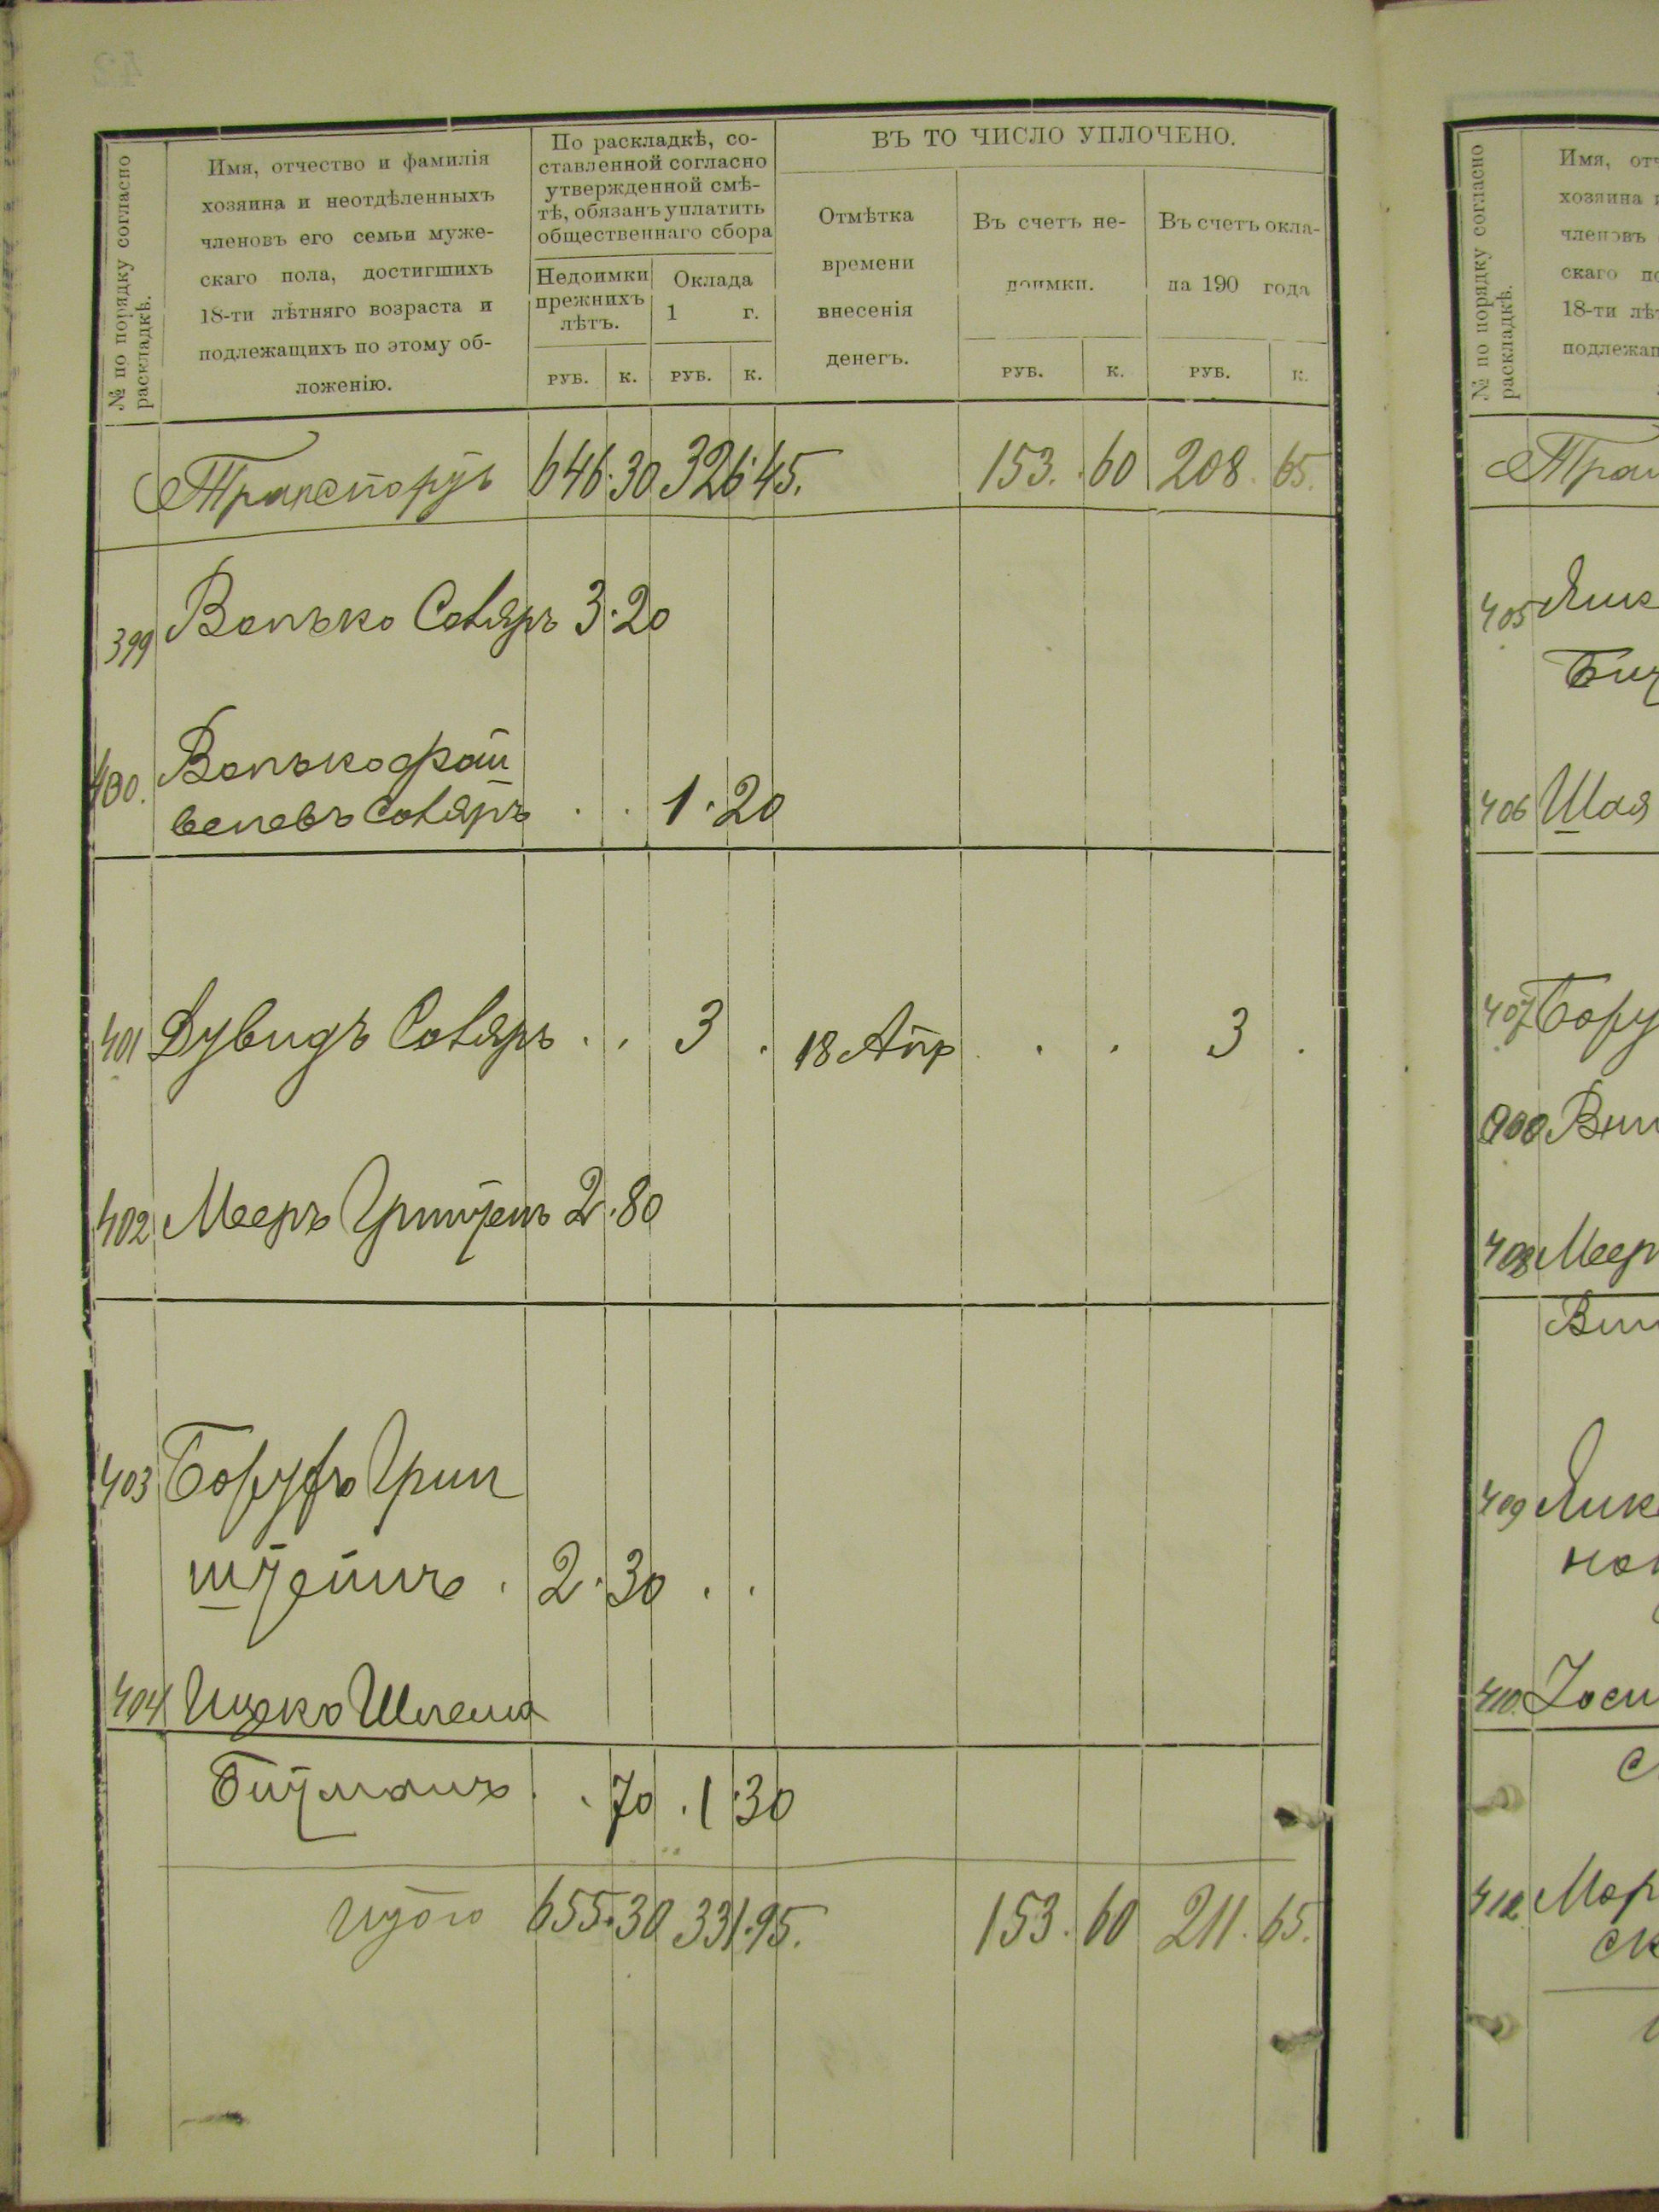 № по порядку согласно раскладкѣ.
Имя, отчество и фамилія
хозяина и неотдѣленныхъ
членовъ его семьи муже-
скаго пола, достигшихъ
18-ти лѣтняго возраста и
подлежащихъ по этому об-
ложенію.
По раскладкѣ, со-
ставленной согласно
утвержденной смѣ-
тѣ, обязанъ уплатить
общественнаго сбора
Недоимки
прежнихъ
лѣтъ.
Оклада
1 г.
РУБ. К. РУБ. К.
ВЪ ТО ЧИСЛО УПЛОЧЕНО.
Отмѣтка
времени
внесенія
денегъ.
Въ счетъ не-
доимки.
РУБ. К.
Въ счетъ окла-
да 190 года
РУБ. К.
Транспортъ 646.30 326.45. 153. 60 208. 65.
399 Волько Сотляръ 3.20
400. Волько
Сотляръ . . 1.20
401 Дувидъ Сотляръ . . 3 . 18 Апр . . 3 .
402 Мееръ 2.80
403 Борухъ Грин
штейнъ . 2.30 . .
404 Ицко Шлема
Битманъ . . 70 . 1.30
Итого 655.30 331.95. 153. 60 211. 65.
№ по порядку согласно раскладкѣ.
Имя, отч
хозяина и
членовъ
скаго по
18-ти лѣт
подлежащ
Тран
405
406 Шая
407 Бору
408 Меер
409
410.
Мор
ск